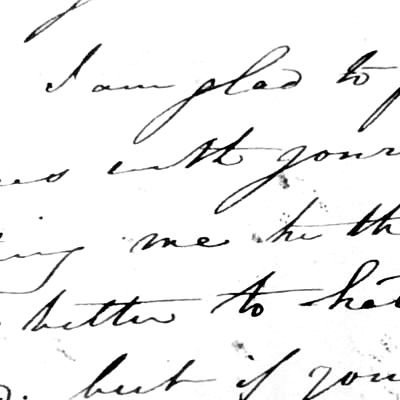 I am glad to
with your
ing me he th
better to hat
but if you